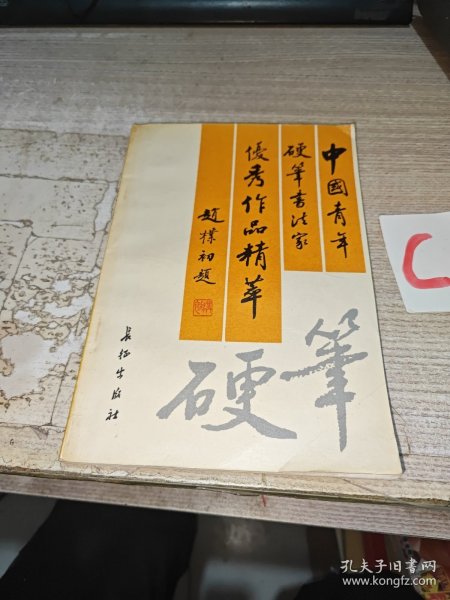 中國青年
硬筆書法家
優秀作品精萃
趙樸初題
硬筆
长征出版社
C
孔夫子旧书网
www.kongfz.com